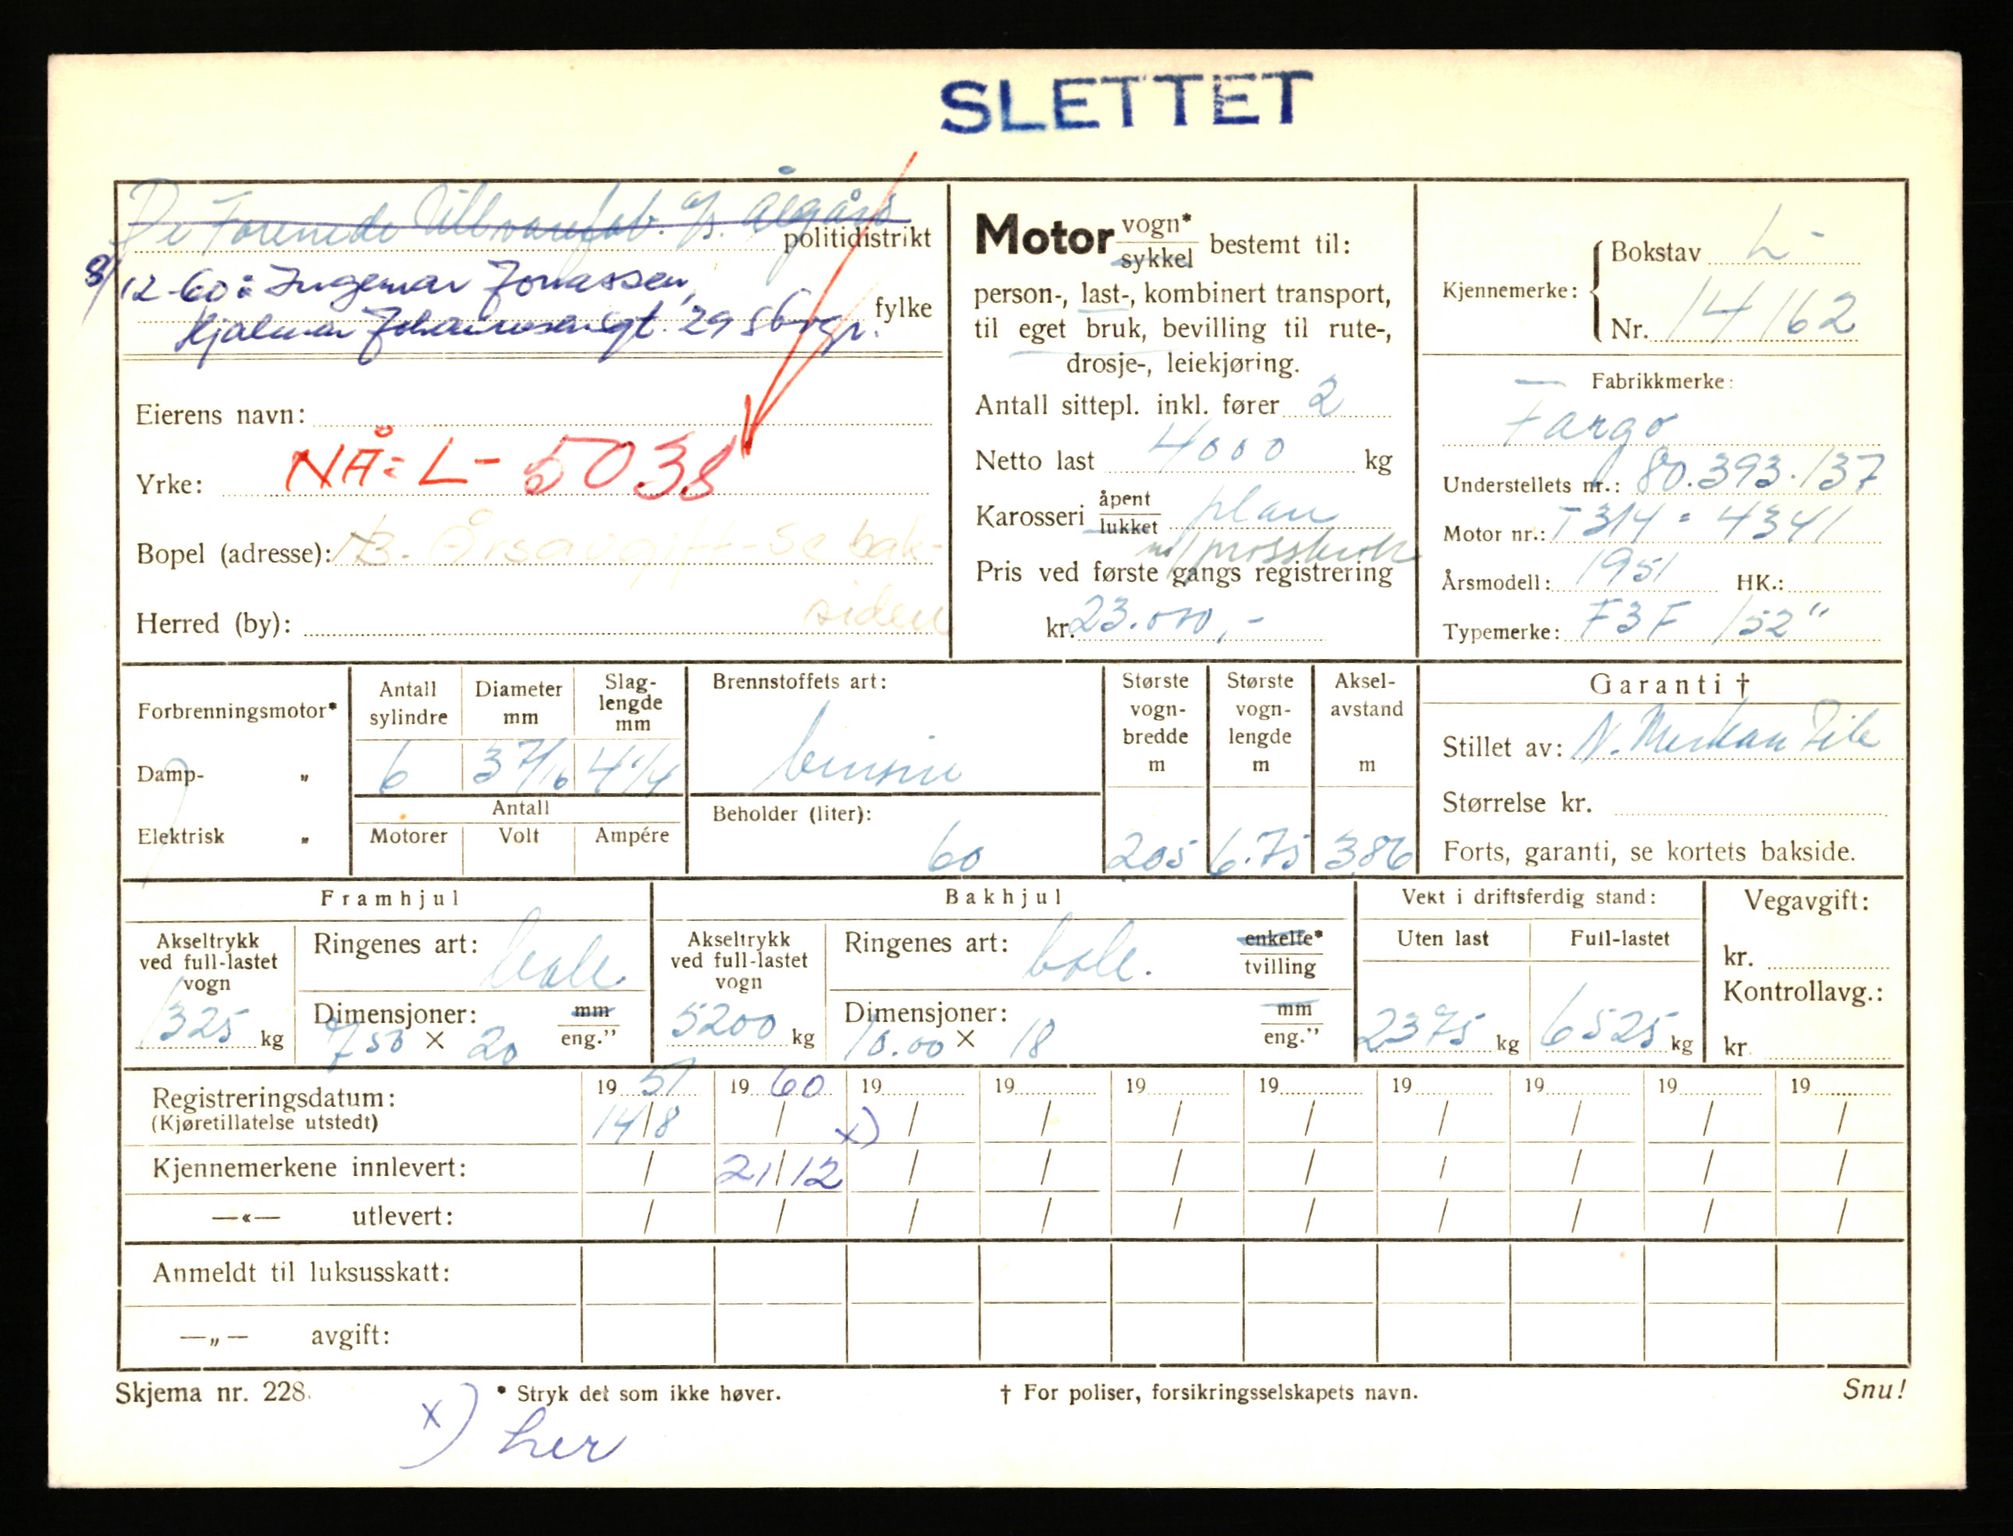 SLETTET
De Forenede Ullvarefab. A/S. Ålgård
politidistrikt
8/12-60: Ingemar Jonassen,
fylke
Hjalmar Johansensgt. 29 Sbrgr.
Eierens navn:
Yrke: NÅ: L- 5038
Bopel (adresse): NB. Årsavgift - se bak-
siden
Herred (by):
Motor vogn* sykkel bestemt til:
person-, last-, kombinert transport,
til eget bruk, bevilling til rute-,
drosje-, leiekjøring.
Antall sittepl. inkl. fører 2
Netto last 4000 kg
Karosseri åpent lukket plan
Pris ved første gangs registrering
kr. 23.000,-
Kjennemerke:
Bokstav L-
Nr. 14162
Fabrikkmerke:
Fargo
Understellets nr.: 80.393.137
Motor nr.: T314 = 4341
Årsmodell: 1951 HK.:
Typemerke: F3F 152"
Forbrenningsmotor*
Damp- „
Elektrisk „
Antall sylindre
Diameter mm
Slag-lengde mm
6 3 7/16 4 1/4
Antall
Motorer Volt Ampére
Brennstoffets art:
bensin
Beholder (liter):
60
Største vogn-bredde m
205
Største vogn-lengde m
6.75
Aksel-avstand m
3.86
Garanti †
Stillet av: N.
Størrelse kr.
Forts, garanti, se kortets bakside.
Framhjul
Akseltrykk ved full-lastet vogn
1325 kg
Ringenes art:
Dimensjoner: mm eng."
750 × 20
Bakhjul
Akseltrykk ved full-lastet vogn
5200 kg
Ringenes art: enkelte* tvilling
Dimensjoner: mm eng."
10.00 × 18
Vekt i driftsferdig stand:
Uten last Full-lastet
2375 kg 6525 kg
Vegavgift:
kr.
Kontrollavg.:
kr.
Registreringsdatum: 1951 1960 19 19 19 19 19 19 19 19
(Kjøretillatelse utstedt) 14/8 / x) / / / / / / / /
Kjennemerkene innlevert: / 21/12 / / / / / / / /
—«— utlevert: / / / / / / / / / /
Anmeldt til luksusskatt:
—„— avgift:
Skjema nr. 228.
* Stryk det som ikke høver.
† For poliser, forsikringsselskapets navn.
Snu!
x) her